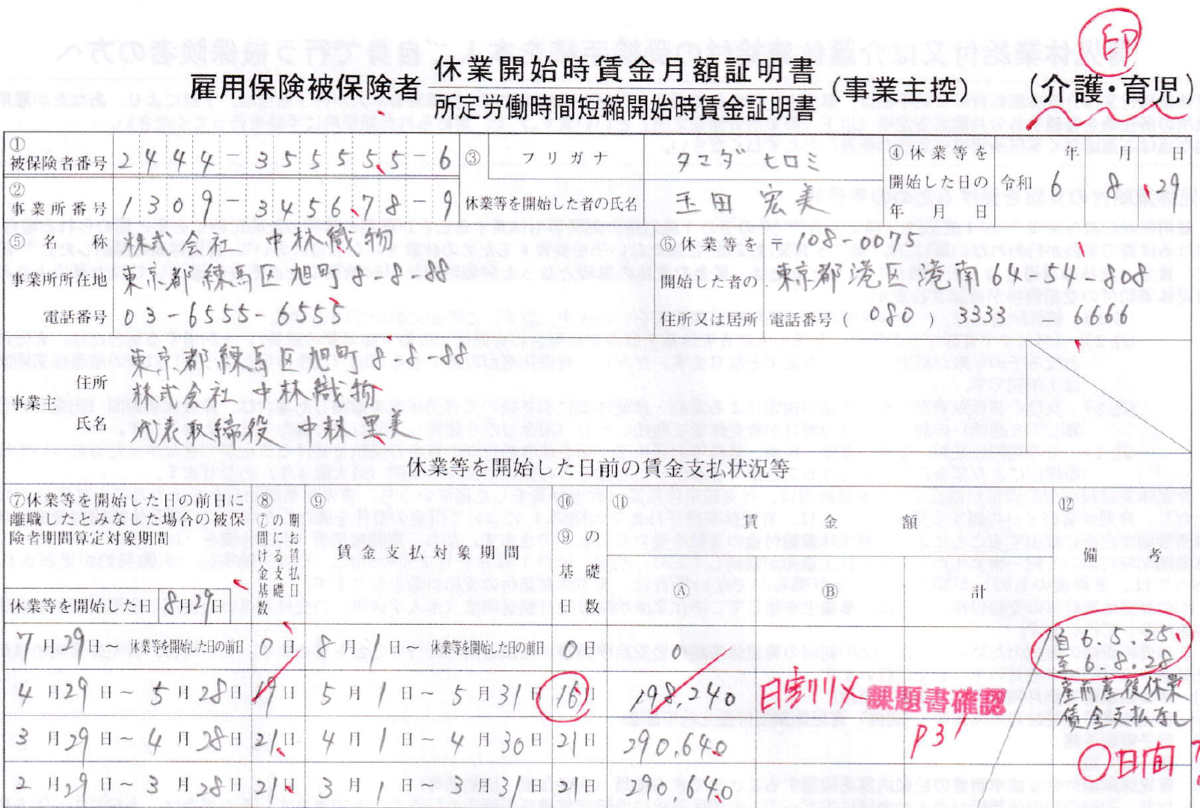 印
雇用保険被保険者 休業開始時賃金月額証明書 (事業主控) (介護・育児)
所定労働時間短縮開始時賃金証明書
① 被保険者番号 2444-355555-6 ③ フリガナ タマダ ヒロミ ④休業等を 年 月 日
開始した日の 令和 6 8 29
② 事業所番号 1309-345678-9 休業等を開始した者の氏名 玉田 宏美 年月日
⑤ 名称 株式会社 中林織物 ⑥休業等を 〒 108-0075
事業所所在地 東京都練馬区旭町8-8-88 開始した者の 東京都港区港南64-54-808
電話番号 03-6555-6555 住所又は居所 電話番号 ( 080 ) 3333 - 6666
住所 東京都練馬区旭町8-8-88
事業主 株式会社 中林織物
氏名 代表取締役 中林里美
休業等を開始した日前の賃金支払状況等
⑦休業等を開始した日の前日に離職したとみなした場合の被保険者期間算定対象期間
⑧ ⑦の期間における賃金支払基礎日数
⑨ 賃金支払対象期間
⑩ ⑨の基礎日数
⑪ 賃金額
Ⓐ Ⓑ 計
⑫ 備考
休業等を開始した日 8月29日
7月29日~ 休業等を開始した日の前日 0日 8月1日~ 休業等を開始した日の前日 0日 0
自 6.5.25
至 6.8.28
産前産後休業
賃金支払なし
4月29日~5月28日 19日 5月1日~5月31日 16日 198,240
課題書確認
P31
3月29日~4月28日 21日 4月1日~4月30日 21日 290,640
〇日間
2月29日~3月28日 21日 3月1日~3月31日 21日 290,640